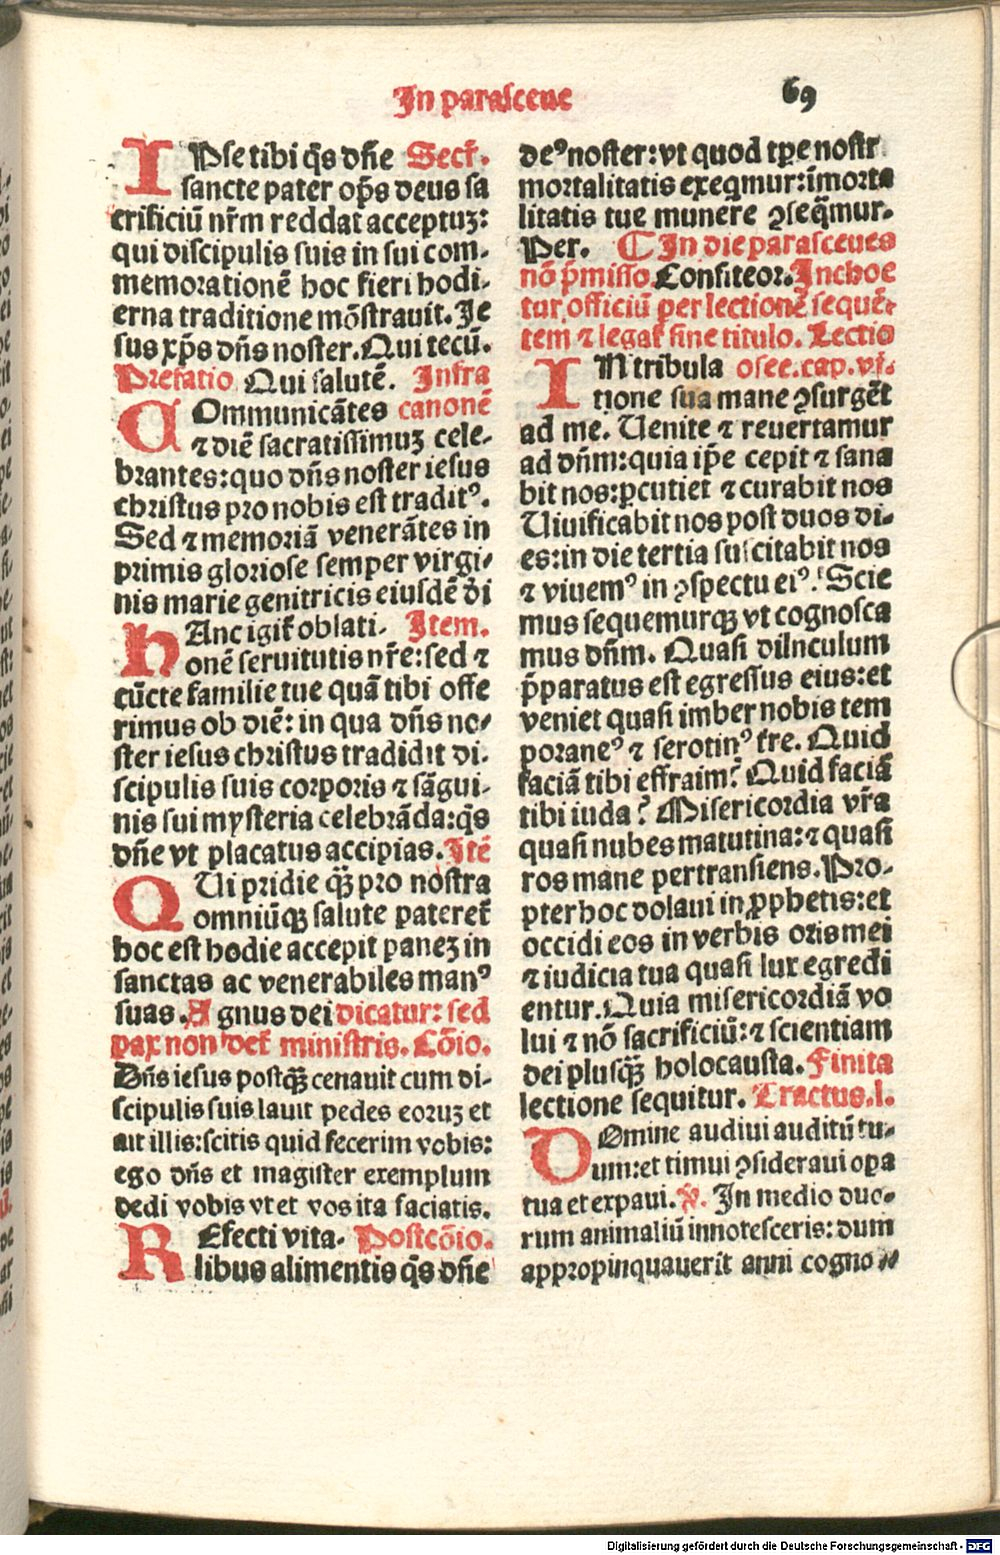 In parasceue
69
IPse tibi q̄s dn̄e Secr̄.
sancte pater op̄s deus sa
crificiū nr̄m reddat acceptuꝫ:
qui discipulis suis in sui com-
memorationē hoc fieri hodi-
erna traditione mōstrauit. Je
sus xp̄s dn̄s noster. Qui tecū.
Prefatio Qui salutē. Infra
COmmunicātes canonē
⁊ diē sacratissimuꝫ cele-
brantes: quo dn̄s noster iesus
christus pro nobis est traditꝰ.
Sed ⁊ memoriā venerātes in
primis gloriose semper virgi-
nis marie genitricis eiusdē di
hAnc igit̄ oblati. Item.
onē seruitutis nr̄e: sed ⁊
cūcte familie tue quā tibi offe
rimus ob diē: in qua dn̄s no-
ster iesus christus tradidit di-
scipulis suis corporis ⁊ sāgui-
nis sui mysteria celebrāda: q̄s
dn̄e vt placatus accipias. Itē
QUi pridie qꝫ̄ pro nostra
omniūqꝫ salute pateret̄
hoc est hodie accepit paneꝫ in
sanctas ac venerabiles manꝰ
suas. Agnus dei dicatur: sed
pax non det̄ ministris. Cōio.
Dn̄s iesus postqꝫ̄ cenauit cum di-
scipulis suis lauit pedes eoruꝫ et
ait illis: scitis quid fecerim vobis:
ego dn̄s et magister exemplum
dedi vobis vt et vos ita faciatis.
REfecti vita- Postcōio.
libus alimentis q̄s dn̄e
deꝰ noster: vt quod tp̄e nostr
mortalitatis exeq̄mur: īmorta
litatis tue munere ꝯseq̄mur.
Per. ¶ In die parasceues
nō p̄misso Confiteor. Inchoe
tur officiū per lectionē sequē-
tem ⁊ legat̄ sine titulo. Lectio
IN tribula osee. cap. vi.
tione sua mane ꝯsurgēt
ad me. Uenite ⁊ reuertamur
ad dn̄m: quia ip̄e cepit ⁊ sana
bit nos: ꝑcutiet ⁊ curabit nos
Uiuificabit nos post duos di-
es: in die tertia suscitabit nos
⁊ viuemꝰ in ꝯspectu eiꝰ. Scie
mus sequemurqꝫ vt cognosca
mus dn̄m. Quasi diluculum
p̄paratus est egressus eius: et
veniet quasi imber nobis tem
poraneꝰ ⁊ serotinꝰ tr̄e. Quid
faciā tibi effraim? Quid faciā
tibi iuda? Misericordia vr̄a
quasi nubes matutina: ⁊ quasi
ros mane pertransiens. Pro-
pter hoc dolaui in ꝓphetis: et
occidi eos in verbis oris mei
⁊ iudicia tua quasi lux egredi
entur. Quia misericordiā vo
lui ⁊ nō sacrificiū: ⁊ scientiam
dei plusqꝫ̄ holocausta. Finita
lectione sequitur. Tractus. l.
DOmine audiui auditū tu-
um: et timui ꝯsideraui opa
tua et expaui. ℣. In medio duo-
rum animaliū innotesceris: dum
appropinquauerit anni cogno-
Digitalisierung gefördert durch die Deutsche Forschungsgemeinschaft - DFG